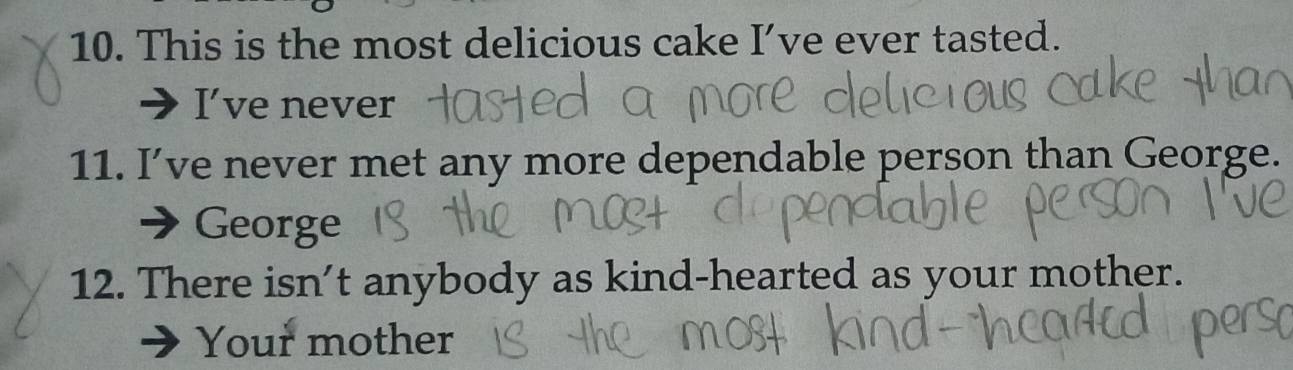 10. This is the most delicious cake I've ever tasted.
→ I've never tasted a more delicious cake than
11. I've never met any more dependable person than George.
→ George is the most dependable person I've
12. There isn't anybody as kind-hearted as your mother.
→ Your mother is the most kind-hearted perso